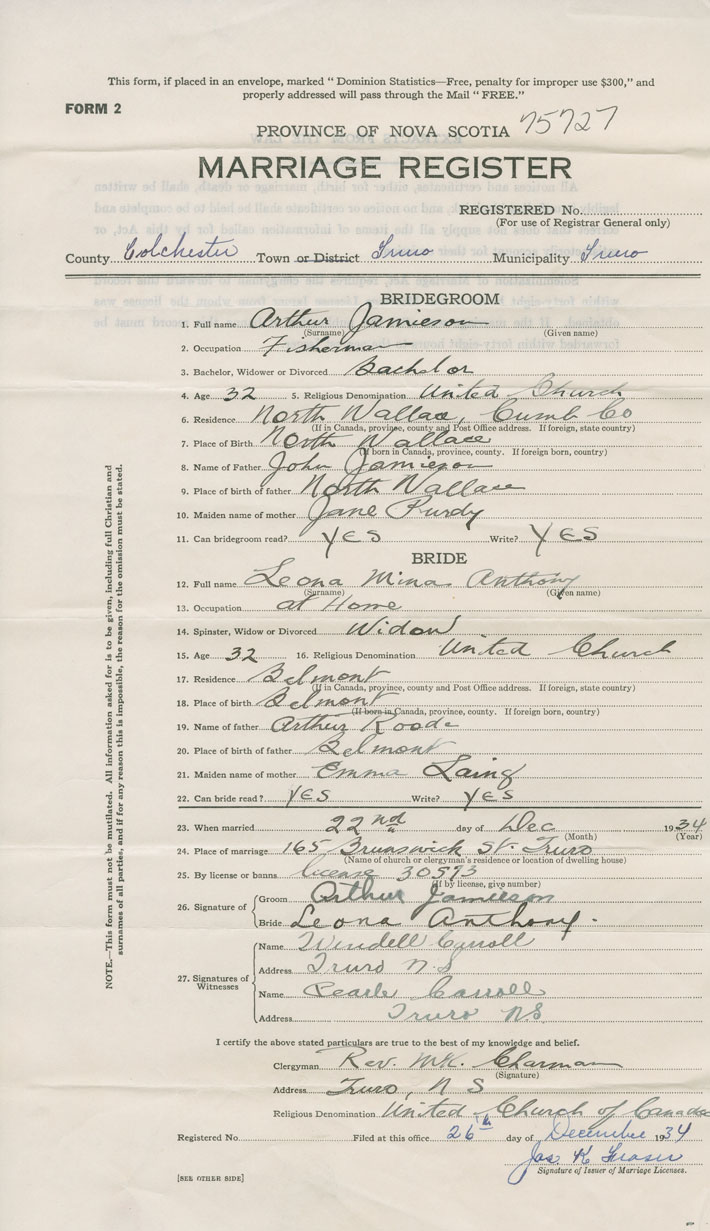 This form, if placed in an envelope, marked " Dominion Statistics—Free, penalty for improper use $300," and
properly addressed will pass through the Mail " FREE."
FORM 2
PROVINCE OF NOVA SCOTIA 75727
MARRIAGE REGISTER
REGISTERED No.
(For use of Registrar General only)
County Colchester Town or District Truro Municipality Truro
BRIDEGROOM
1. Full name Arthur Jamieson
(Surname) (Given name)
2. Occupation Fisherman
3. Bachelor, Widower or Divorced Bachelor
4. Age 32 5. Religious Denomination United Church
6. Residence North Wallace, Cumb Co
(If in Canada, province, county and Post Office address. If foreign, state country)
7. Place of Birth North Wallace
(If born in Canada, province, county. If foreign born, country)
8. Name of Father John Jamieson
9. Place of birth of father North Wallace
10. Maiden name of mother Jane Purdy
11. Can bridegroom read? YES Write? YES
BRIDE
12. Full name Leona Mina Anthony
(Surname) (Given name)
13. Occupation at Home
14. Spinster, Widow or Divorced Widow
15. Age 32 16. Religious Denomination United Church
17. Residence Belmont
(If in Canada, province, county and Post Office address. If foreign, state country)
18. Place of birth Belmont
(If born in Canada, province, county. If foreign born, country)
19. Name of father Arthur Roode
20. Place of birth of father Belmont
21. Maiden name of mother Emma Laing
22. Can bride read? YES Write? YES
23. When married 22nd day of Dec 1934
(Month) (Year)
24. Place of marriage 165 Brunswick St. Truro
(Name of church or clergyman's residence or location of dwelling house)
25. By license or banns license 30593
(If by license, give number)
26. Signature of Groom Arthur Jamieson
Bride Leona Anthony.
27. Signatures of Witnesses
Name Wendell Carroll
Address Truro N.S
Name Pearle Carroll
Address Truro NS.
I certify the above stated particulars are true to the best of my knowledge and belief.
Clergyman Rev. MK. Charman
(Signature)
Address Truro, N S
Religious Denomination United Church of Canada
Registered No. Filed at this office 26th day of December 1934
Jas K Fraser
Signature of Issuer of Marriage Licenses.
[SEE OTHER SIDE]
NOTE.—This form must not be mutilated. All information asked for is to be given, including full Christian and
surnames of all parties, and if for any reason this is impossible, the reason for the omission must be stated.